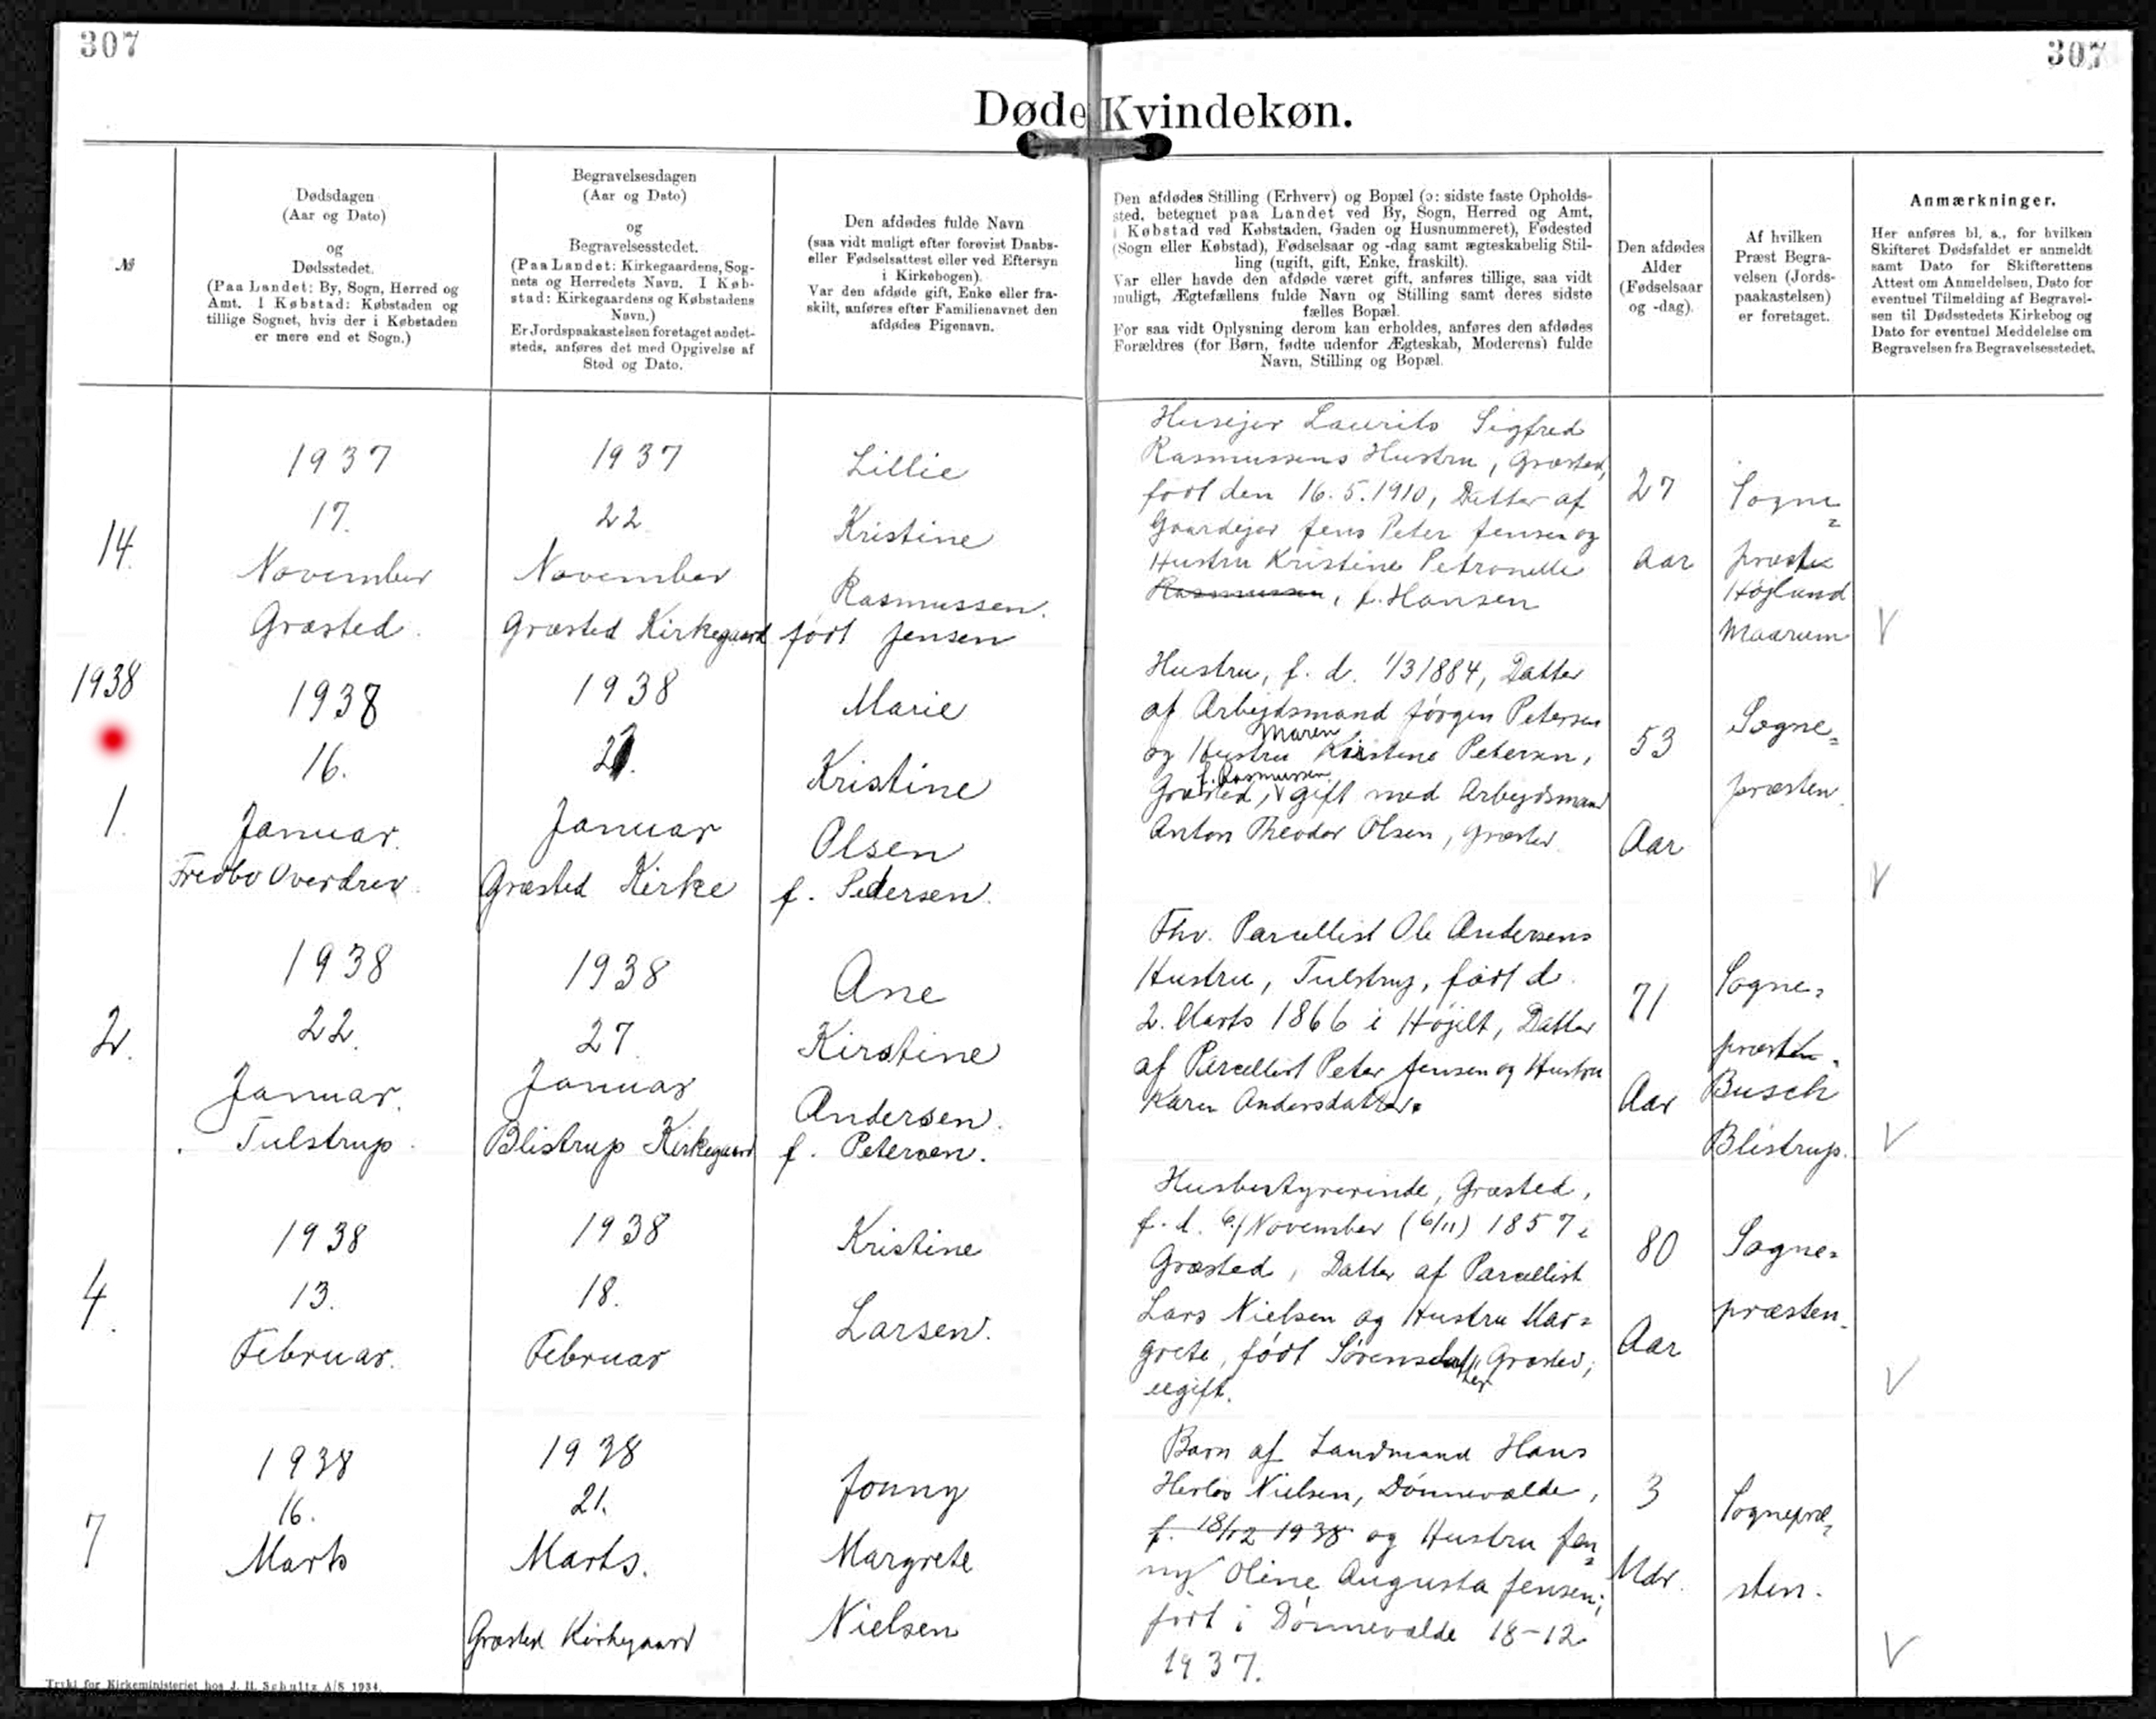 307
307
Døde Kvindekøn.
№
Dødsdagen
(Aar og Dato)
og
Dødsstedet.
(Paa Landet: By, Sogn, Herred og
Amt. I Købstad: Købstaden og
tillige Sognet, hvis der i Købstaden
er mere end et Sogn.)
Begravelsesdagen
(Aar og Dato)
og
Begravelsesstedet.
(Paa Landet: Kirkegaardens, Sog-
nets og Herredets Navn. I Køb-
stad: Kirkegaardens og Købstadens
Navn.)
Er Jordspaakastelsen foretaget andet-
steds, anføres det med Opgivelse af
Sted og Dato.
Den afdødes fulde Navn
(saa vidt muligt efter forevist Daabs-
eller Fødselsattest eller ved Eftersyn
i Kirkebogen).
Var den afdøde gift, Enke eller fra-
skilt, anføres efter Familienavnet den
afdødes Pigenavn.
Den afdødes Stilling (Erhverv) og Bopæl (ɔ: sidste faste Opholds-
sted, betegnet paa Landet ved By, Sogn, Herred og Amt,
i Købstad ved Købstaden, Gaden og Husnummeret), Fødested
(Sogn eller Købstad), Fødselsaar og -dag samt ægteskabelig Stil-
ling (ugift, gift, Enke, fraskilt).
Var eller havde den afdøde været gift, anføres tillige, saa vidt
muligt, Ægtefællens fulde Navn og Stilling samt deres sidste
fælles Bopæl.
For saa vidt Oplysning derom kan erholdes, anføres den afdødes
Forældres (for Børn, fødte udenfor Ægteskab, Moderens) fulde
Navn, Stilling og Bopæl.
Den afdødes
Alder
(Fødselsaar
og -dag).
Af hvilken
Præst Begra-
velsen (Jords-
paakastelsen)
er foretaget.
Anmærkninger.
Her anføres bl. a., for hvilken
Skifteret Dødsfaldet er anmeldt
samt Dato for Skifterettens
Attest om Anmeldelsen, Dato for
eventuel Tilmelding af Begravel-
sen til Dødsstedets Kirkebog og
Dato for eventuel Meddelelse om
Begravelsen fra Begravelsesstedet.
14.
1937
17.
November
Græsted.
1937
22.
November
Græsted Kirkegaard
Lillie
Kristine
Rasmussen.
født Jensen
Husejer Laurits Sigfred
Rasmussens Hustru, Græsted,
født den 16.5.1910, Datter af
Gaardejer Jens Peter Jensen og
Hustru Kristine Petronelle
Rasmussen, f. Hansen
27
Aar
Sogne=
præste
Højlund
Maarum
V
1938
1.
1938
16.
Januar.
Fredbo Overdrev.
1938
Januar
Græsted Kirke
Marie
Kristine
Olsen
f. Petersen.
Hustru, f. d. 1/3 1884, Datter
af Arbejdsmand Jørgen Petersen
Maren
og Hustru Kirstine Petersen,
f. Rasmussen
Græsted, V gift med Arbejdsmand
Anton Theodor Olsen, Græsted.
53
Aar
Sogne=
præsten.
V
2.
1938
22.
Januar.
Tulstrup.
1938
27.
Januar
Blistrup Kirkegaard
Ane
Kirstine
Andersen.
f. Petersen.
Fhv. Parcellist Ole Andersens
Hustru, Tulstrup, født d.
2. Marts 1866 i Højelt, Datter
af Parcellist Peter Jensen og Hustru
Karen Andersdatter.
71
Aar
Sogne=
præsten.
Busch
Blistrup.
V
4.
1938
13.
Februar.
1938
18.
Februar
Kristine
Larsen.
Husbestyrerinde, Græsted,
f. d. 6/ November (6/11) 1857 i
Græsted, Datter af Parcellist
Lars Nielsen og Hustru Mar=
grete, født Sørensdatter, Græsted;
ugift.
80
Aar
Sogne=
præsten.
V
7
1938
16.
Marts
1938
21.
Marts.
Græsted Kirkegaard
Jonny
Margrete
Nielsen
Barn af Landmand Hans
Herlov Nielsen, Dønnevælde,
f. 18/12 1938 og Hustru Jen=
ny Oline Augusta Jensen;
født i Dønnevælde 18-12
1937.
3
Mdr.
Sognepræ=
sten.
V
Trykt for Kirkeministeriet hos J. H. Schultz A/S 1934.